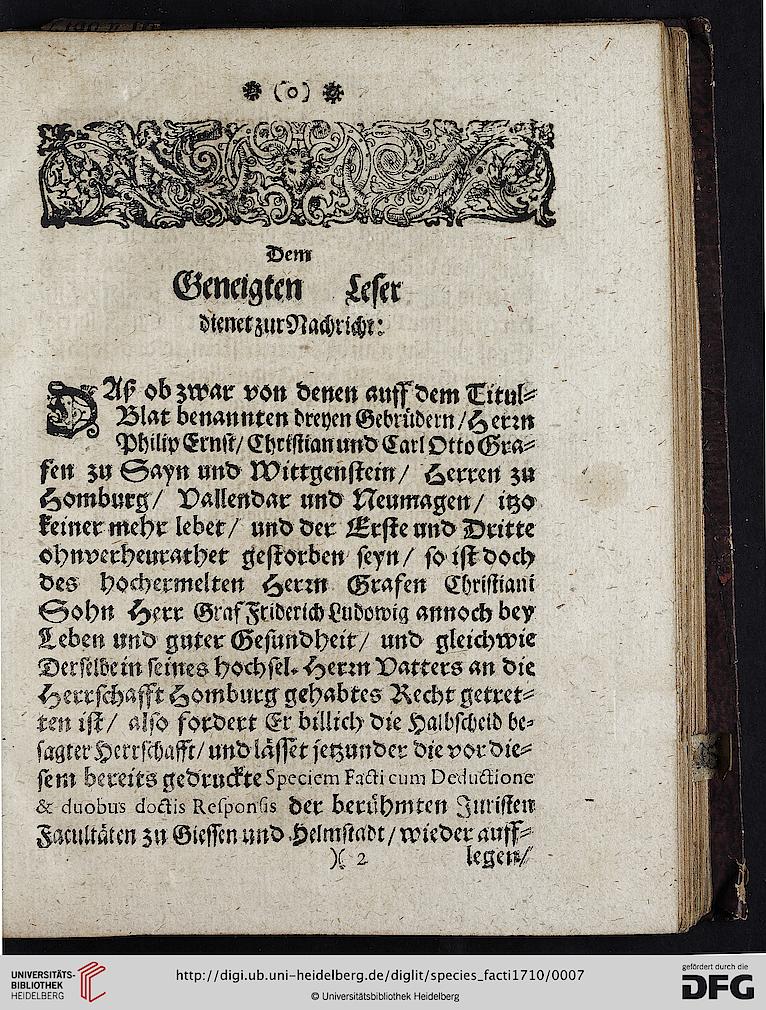 * (o) *
Dem
Geneigten Leser
dienet zur Nachricht:
DAß ob zwar von denen auff dem Titul-
Blat benannten dreyen Gebrüdern / Herrn
Philip Ernst / Christian und Carl Otto Gra-
fen zu Sayn und Wittgenstein / Herren zu
Homburg / Vallendar und Neumagen / itzo
keiner mehr lebet / und der Erste und Dritte
ohnverheurathet gestorben seyn / so ist doch
des hochermelten Herrn Grafen Christiani
Sohn Herr Graf Friderich Ludowig annoch bey
Leben und guter Gesundheit / und gleichwie
Derselbe in seines hochsel. Herrn Vatters an die
Herrschafft Homburg gehabtes Recht getret-
ten ist / also fordert Er billich die Halbscheid be-
sagter Herrschafft / und lässet jetzunder die vor die-
sem bereits gedruckte Speciem Facti cum Deductione
& duobus doctis Responsis der berühmten Juristen
Facultäten zu Giessen und Helmstadt / wieder auff-
)( 2 legen /
UNIVERSITÄTS-
BIBLIOTHEK
HEIDELBERG
http://digi.ub.uni-heidelberg.de/diglit/species_facti1710/0007
© Universitätsbibliothek Heidelberg
gefördert durch die
DFG